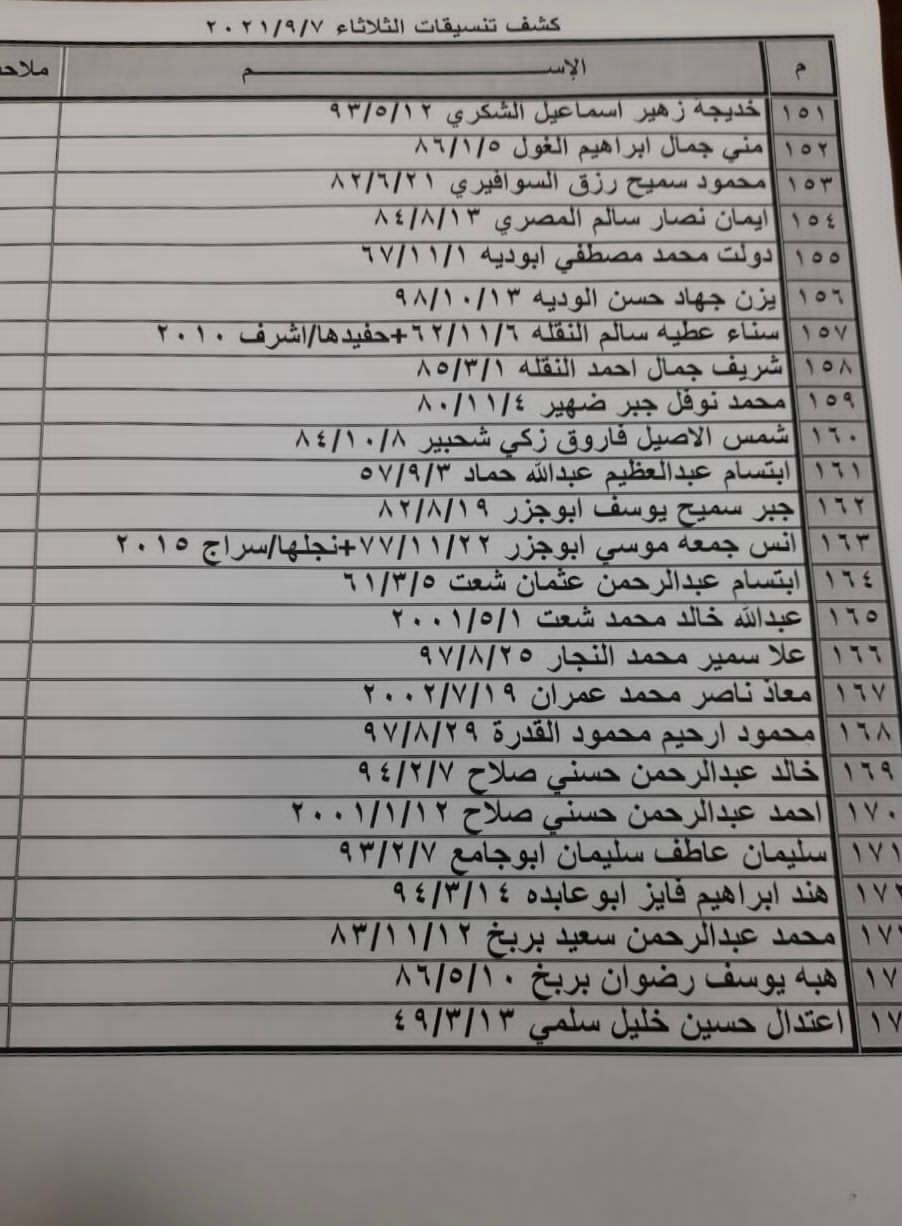 كشف تنسيقات الثلاثاء ٢٠٢١/٩/٧
م الإســـــــم
١٥١ خديجة زهير اسماعيل الشكري ٩٣/٥/١٢
١٥٢ مني جمال ابراهيم الغول ٨٦/١/٥
١٥٣ محمود سميح رزق السوافيري ٨٢/٦/٢١
١٥٤ ايمان نصار سالم المصري ٨٤/٨/١٣
١٥٥ دولت محمد مصطفي ابوديه ٦٧/١١/١
١٥٦ يزن جهاد حسن الوديه ٩٨/١٠/١٣
١٥٧ سناء عطيه سالم النقله ٦٢/١١/٦+حفيدها/اشرف ٢٠١٠
١٥٨ شريف جمال احمد النقله ٨٥/٣/١
١٥٩ محمد نوفل جبر ضهير ٨٠/١١/٤
١٦٠ شمس الاصيل فاروق زكي شحبير ٨٤/١٠/٨
١٦١ ابتسام عبدالعظيم عبدالله حماد ٥٧/٩/٣
١٦٢ جبر سميح يوسف ابوجزر ٨٢/٨/١٩
١٦٣ انس جمعه موسي ابوجزر ٧٧/١١/٢٢+نجلها/سراج ٢٠١٥
١٦٤ ابتسام عبدالرحمن عثمان شعت ٦١/٣/٥
١٦٥ عبدالله خالد محمد شعت ٢٠٠١/٥/١
١٦٦ علا سمير محمد النجار ٩٧/٨/٢٥
١٦٧ معاذ ناصر محمد عمران ٢٠٠٢/٧/١٩
١٦٨ محمود ارحيم محمود القدرة ٩٧/٨/٢٩
١٦٩ خالد عبدالرحمن حسني صلاح ٩٤/٢/٧
١٧٠ احمد عبدالرحمن حسني صلاح ٢٠٠١/١/١٢
١٧١ سليمان عاطف سليمان ابوجامع ٩٣/٢/٧
١٧٢ هند ابراهيم فايز ابوعابده ٩٤/٣/١٤
محمد عبدالرحمن سعيد بربخ ٨٣/١١/١٢
هبه يوسف رضوان بربخ ٨٦/٥/١٠
اعتدال حسين خليل سلمي ٤٩/٣/١٣